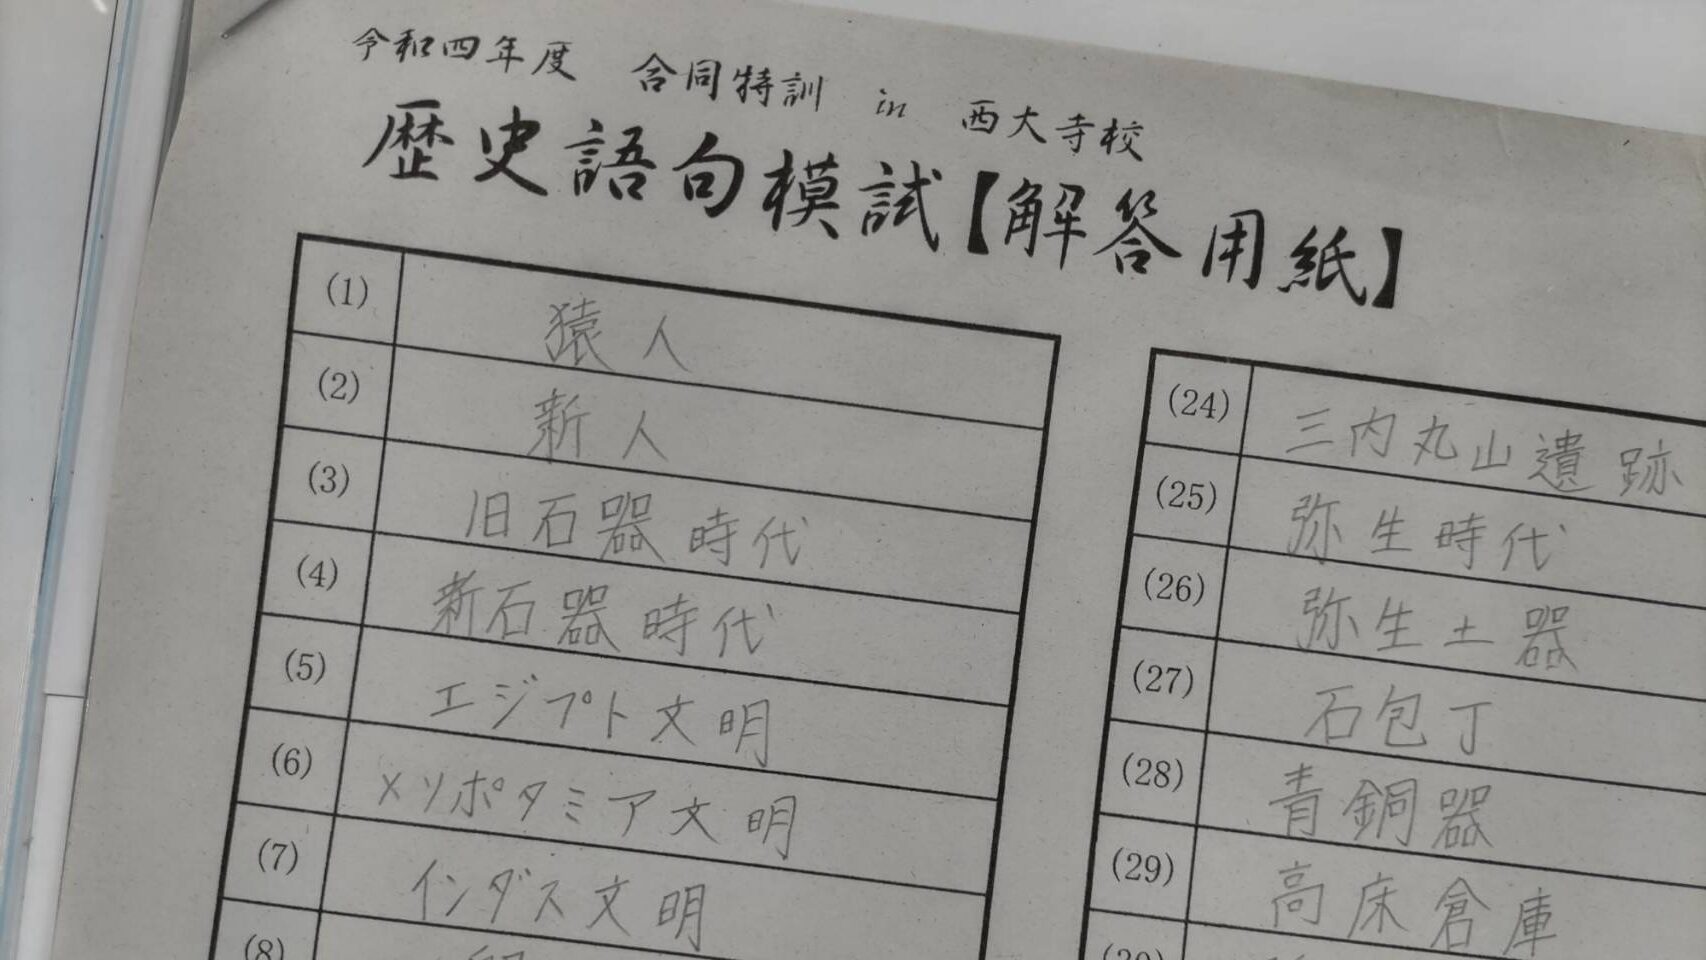 令和四年度 合同特訓 in 西大寺校
歴史語句模試【解答用紙】
(1) 猿人
(2) 新人
(3) 旧石器時代
(4) 新石器時代
(5) エジプト文明
(6) メソポタミア文明
(7) インダス文明
(8)
(24) 三内丸山遺跡
(25) 弥生時代
(26) 弥生土器
(27) 石包丁
(28) 青銅器
(29) 高床倉庫
(30)